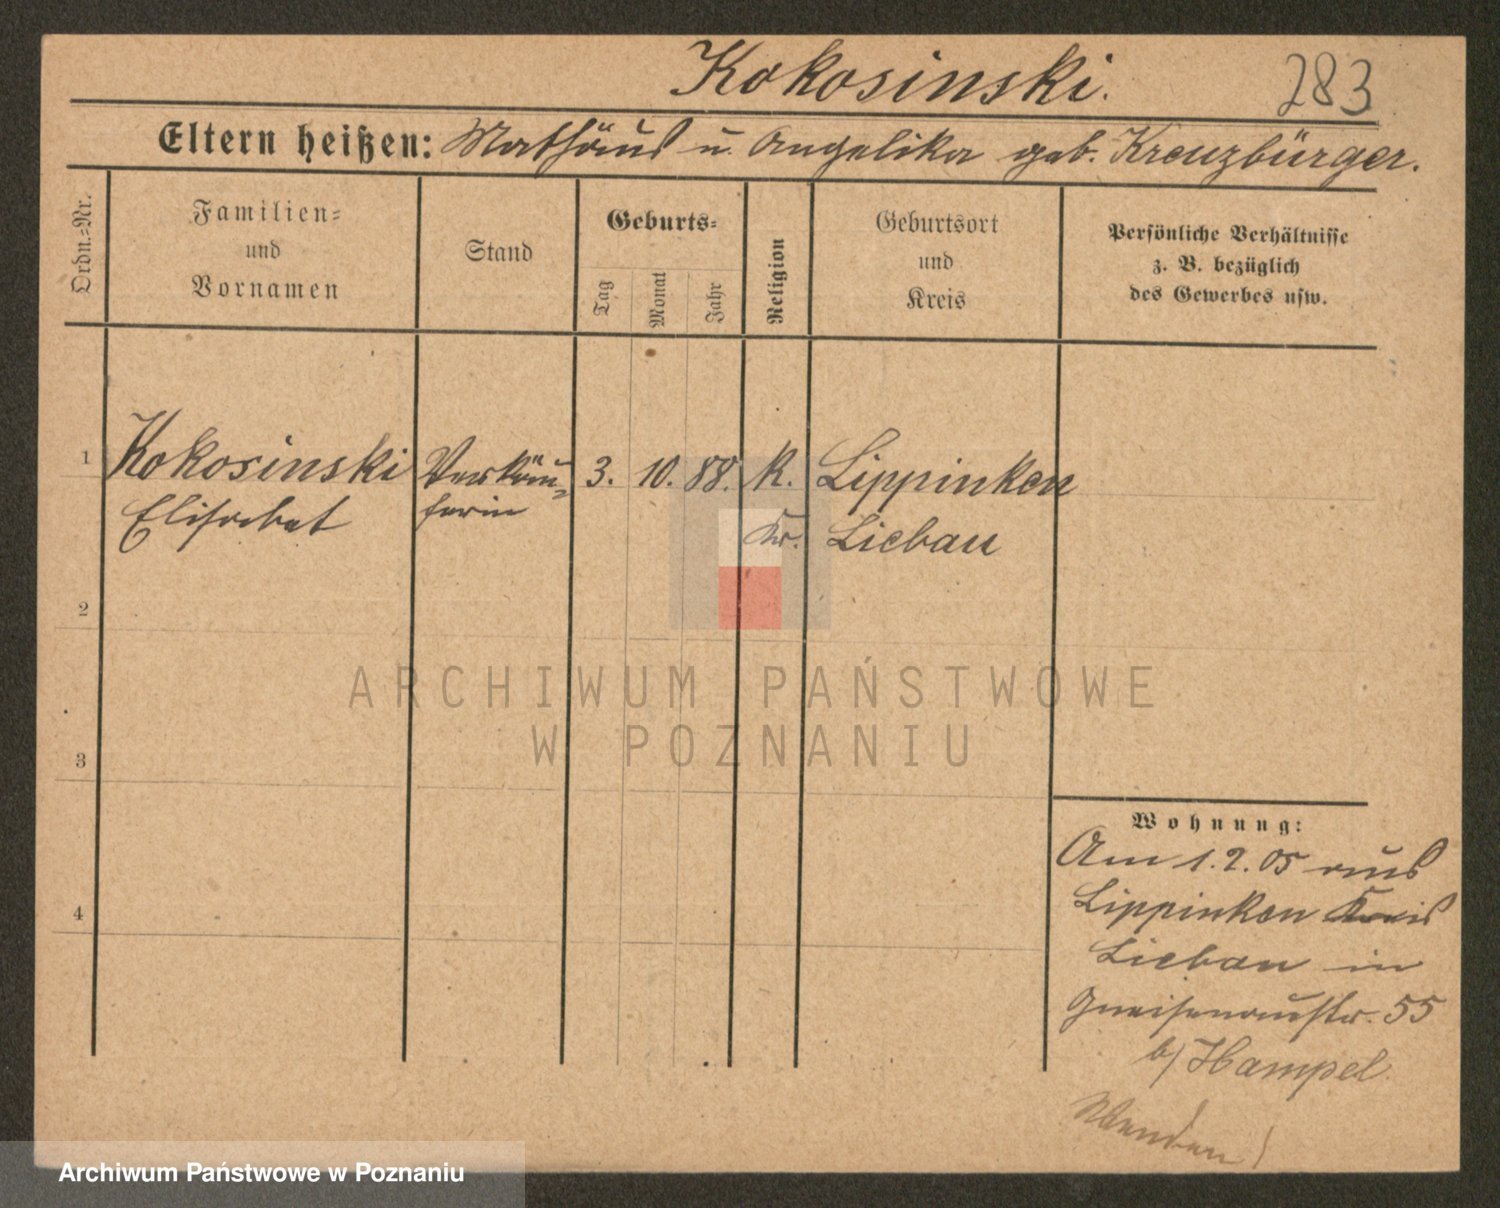 Kokosinski.
283
Eltern heißen: Mathäus u. Angelika geb. Kreuzbürger.
Ordn.=Nr.
Familien=
und
Vornamen
Stand
Geburts=
Tag
Monat
Jahr
Religion
Geburtsort
und
Kreis
Persönliche Verhältnisse
z. B. bezüglich
des Gewerbes usw.
1 Kokosinski Verkäu= 3. 10. 88. K. Lippinken
Elisabet ferin Kr. Liebau
2
ARCHIWUM PAŃSTWOWE
W POZNANIU
3
Wohnung:
Am 1.2.05 aus
Lippinken Kreis
4
Liebau in
Gneisenaustr. 55
b/ Hampel.
Wenden!
Archiwum Państwowe w Poznaniu